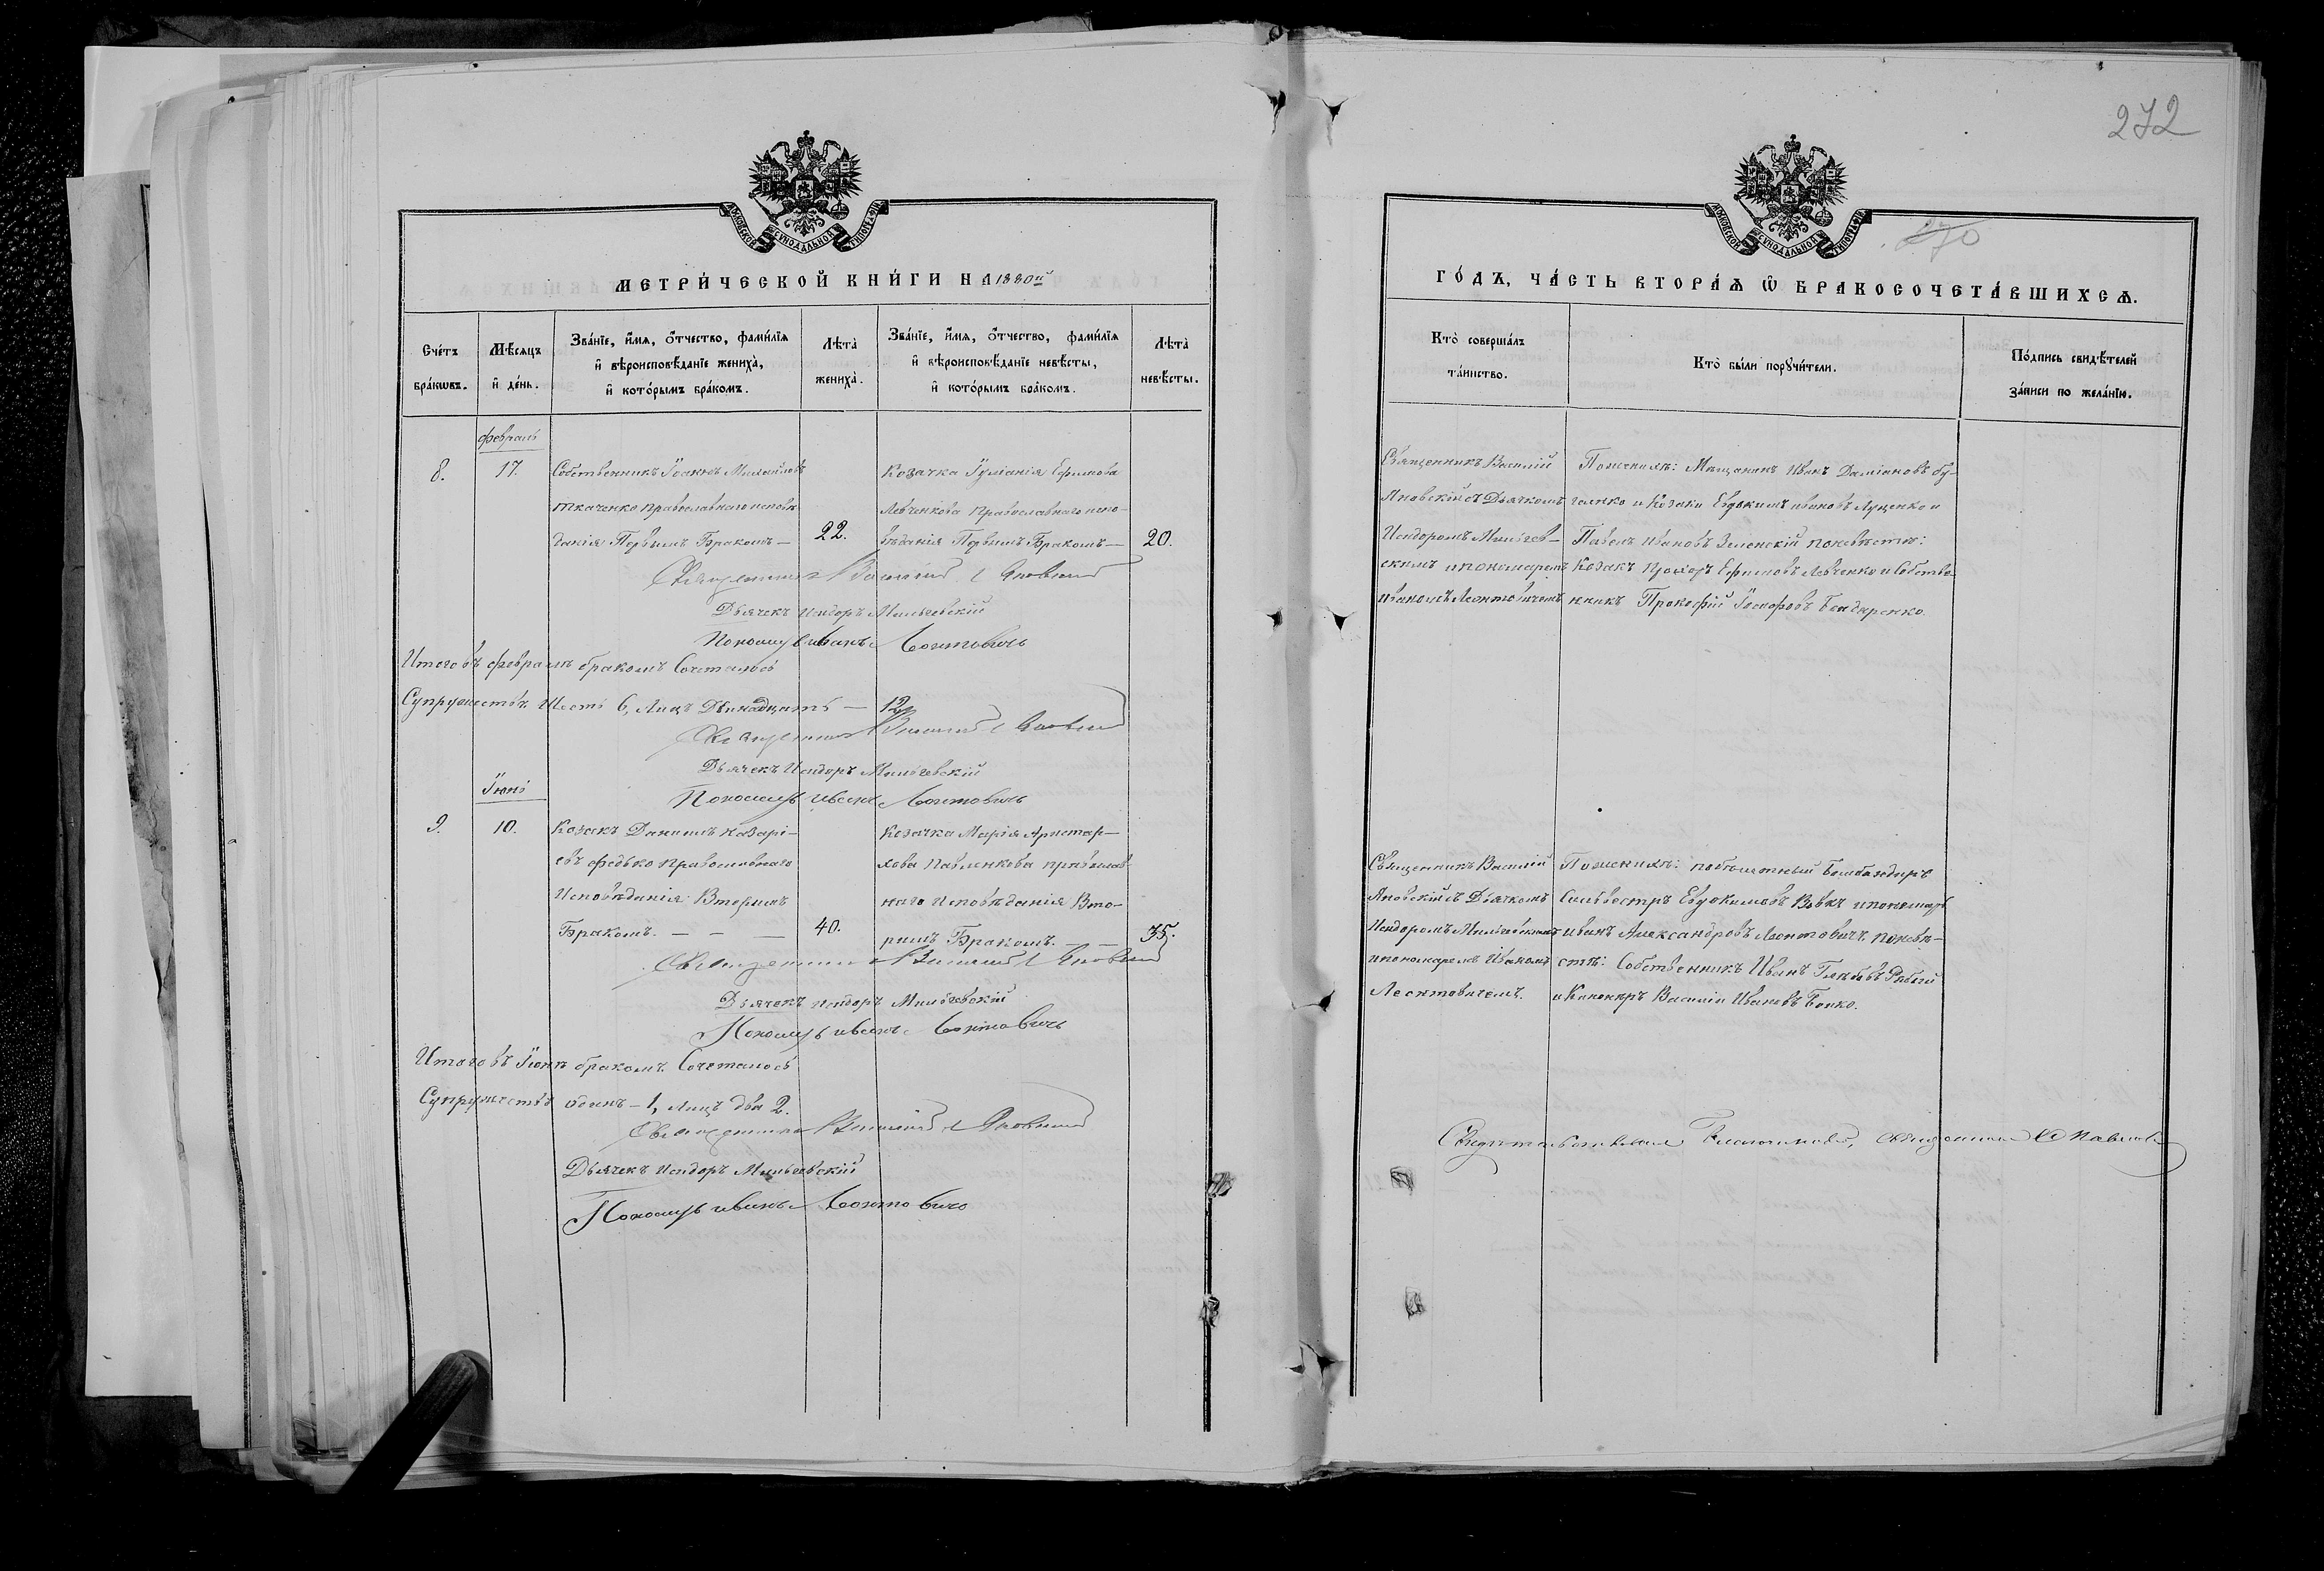 272
270
МОСКОВСКОЙ СѴНОДАЛЬНОЙ ТИПОГРАФІИ
МЕТРИ́ЧЕСКОЙ КНИ́ГИ НА 1880й
Сче́тъ бра́кѡвъ.
Мѣ́сяцъ и҆ де́нь.
Зва́нїе, и҆́мя, ѻ҆́тчество, фами́лїя
и҆ вѣроисповѣ́данїе жениха̀,
и҆ кото́рымъ бра́комъ.
Лѣта̀ жениха̀.
Зва́нїе, и҆́мя, ѻ҆́тчество, фами́лїя
и҆ вѣроисповѣ́данїе невѣ́сты,
и҆ кото́рымъ бра́комъ.
Лѣта̀ невѣ́сты.
февраль
8.
17.
Собственникъ Іоаннъ Михайловъ
ткаченко православнаго исповѣ
данія Первымъ Бракомъ —
22.
Козачка Іуліанія Ефимова
Левченкова православнаго испо-
вѣданія Первымъ Бракомъ —
20.
Священникъ Василій Яновскій
Дьячекъ Исидоръ Мильгевскій
Пономарь иванъ Леонтовичь
Итого въ февралѣ бракомъ Сочеталось
Супружествъ Шесть 6, Лицъ Двенадцать — 12
Священникъ Василій Яновскій
Дьячекъ Исидоръ Мильгевскій
Пономарь иванъ Леонтовичь
Іюнь
9.
10.
Козакъ Даниилъ назарі-
евъ федько православнаго
Исповѣданія Вторымъ
Бракомъ. — — —
40.
Козачка Марія Аристар-
хова Павленкова православ
наго Исповѣданія Вто-
рымъ Бракомъ. — —
35.
Священникъ Василій Яновскій
Дьячекъ Исидоръ Мильгевскій
Пономарь иванъ Леонтовичь
Итого въ Іюнѣ бракомъ Сочеталось
Супружествъ одинъ — 1, лицъ два 2.
Священникъ Василій Яновскій
Дьячекъ Исидоръ Мильгевскій
Пономарь иванъ Леонтовичь
МОСКОВСКОЙ СѴНОДАЛЬНОЙ ТИПОГРАФІИ
ГО́ДЪ, ЧА́СТЬ ВТОРА́Я Ѡ҆ БРАКОСОЧЕТА́ВШИХСЯ.
Кто̀ соверша́лъ
та́инство.
Кто̀ бы́ли порꙋчи́тели.
По́дпись свидѣ́телей
за́писи по жела́нїю.
Священникъ Василій
Яновскій съ Дьячкомъ
Исидоромъ Мильгев-
скимъ и пономаремъ
иваномъ Леонтовичемъ
По женихѣ: Мещанинъ Иванъ Даміановъ бу-
галко и Козаки Евдокимъ ивановъ Луценко и
Павелъ Ивановъ Зеленскій по невѣстѣ:
Козакъ Прохоръ Ефимовъ Левченко и Собстве-
нникъ Прокофій Іосифовъ Бондаренко.
Священникъ Василій
Яновскій съ Дьячкомъ
Исидоромъ Мильгевскимъ
и пономаремъ Иваномъ
Леонтовичемъ.
По женихѣ: Бомбандиръ
Сильвестръ Евдокимовъ Вовкъ и пономарь
иванъ Александровъ Леонтовичъ, по невѣ-
стѣ: Собственникъ Иванъ Глѣбовъ Рябый
и Канониръ Василій Ивановъ Бойко.
священникъ